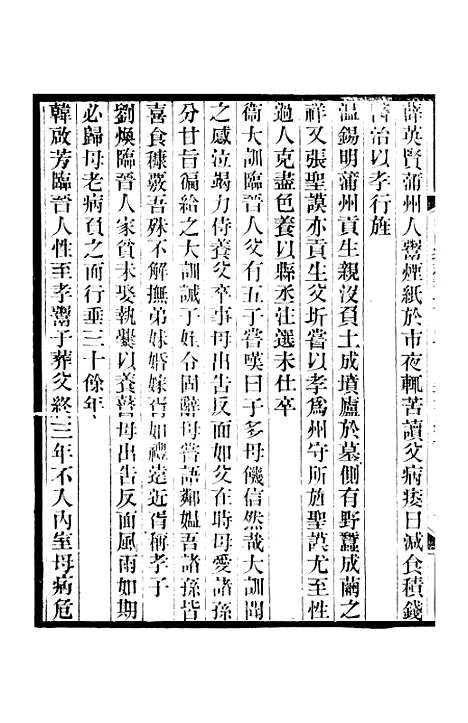 薛英賢蒲州人鬻煙紙於市夜輒苦讀父病痿日減食積錢
醫治以孝行旌
溫錫明蒲州貢生親沒負土成墳廬於墓側有野蠶成繭之
祥又張聖謨亦貢生父圻嘗以孝爲州守所旌聖謨尤至性
過人克盡色養以縣丞注選未仕卒
衞大訓臨晉人父有五丁嘗嘆曰子多母饑信然哉大訓聞
之感泣竭力侍養父卒事母出告反面如父在時母愛諸孫
分甘旨徧給之大訓誡子姪令固辭母嘗語鄰媼吾諸孫皆
喜食穅覈吾殊不解撫弟妹婚嫁皆如禮遠近胥稱孝子
劉煥臨晉人家貧未娶執爨以養瞽母出告反面風雨如期
必歸母老病負之而行垂三十餘年
韓啟芳臨晉人性至孝鬻子葬父終三年不入內室母病危